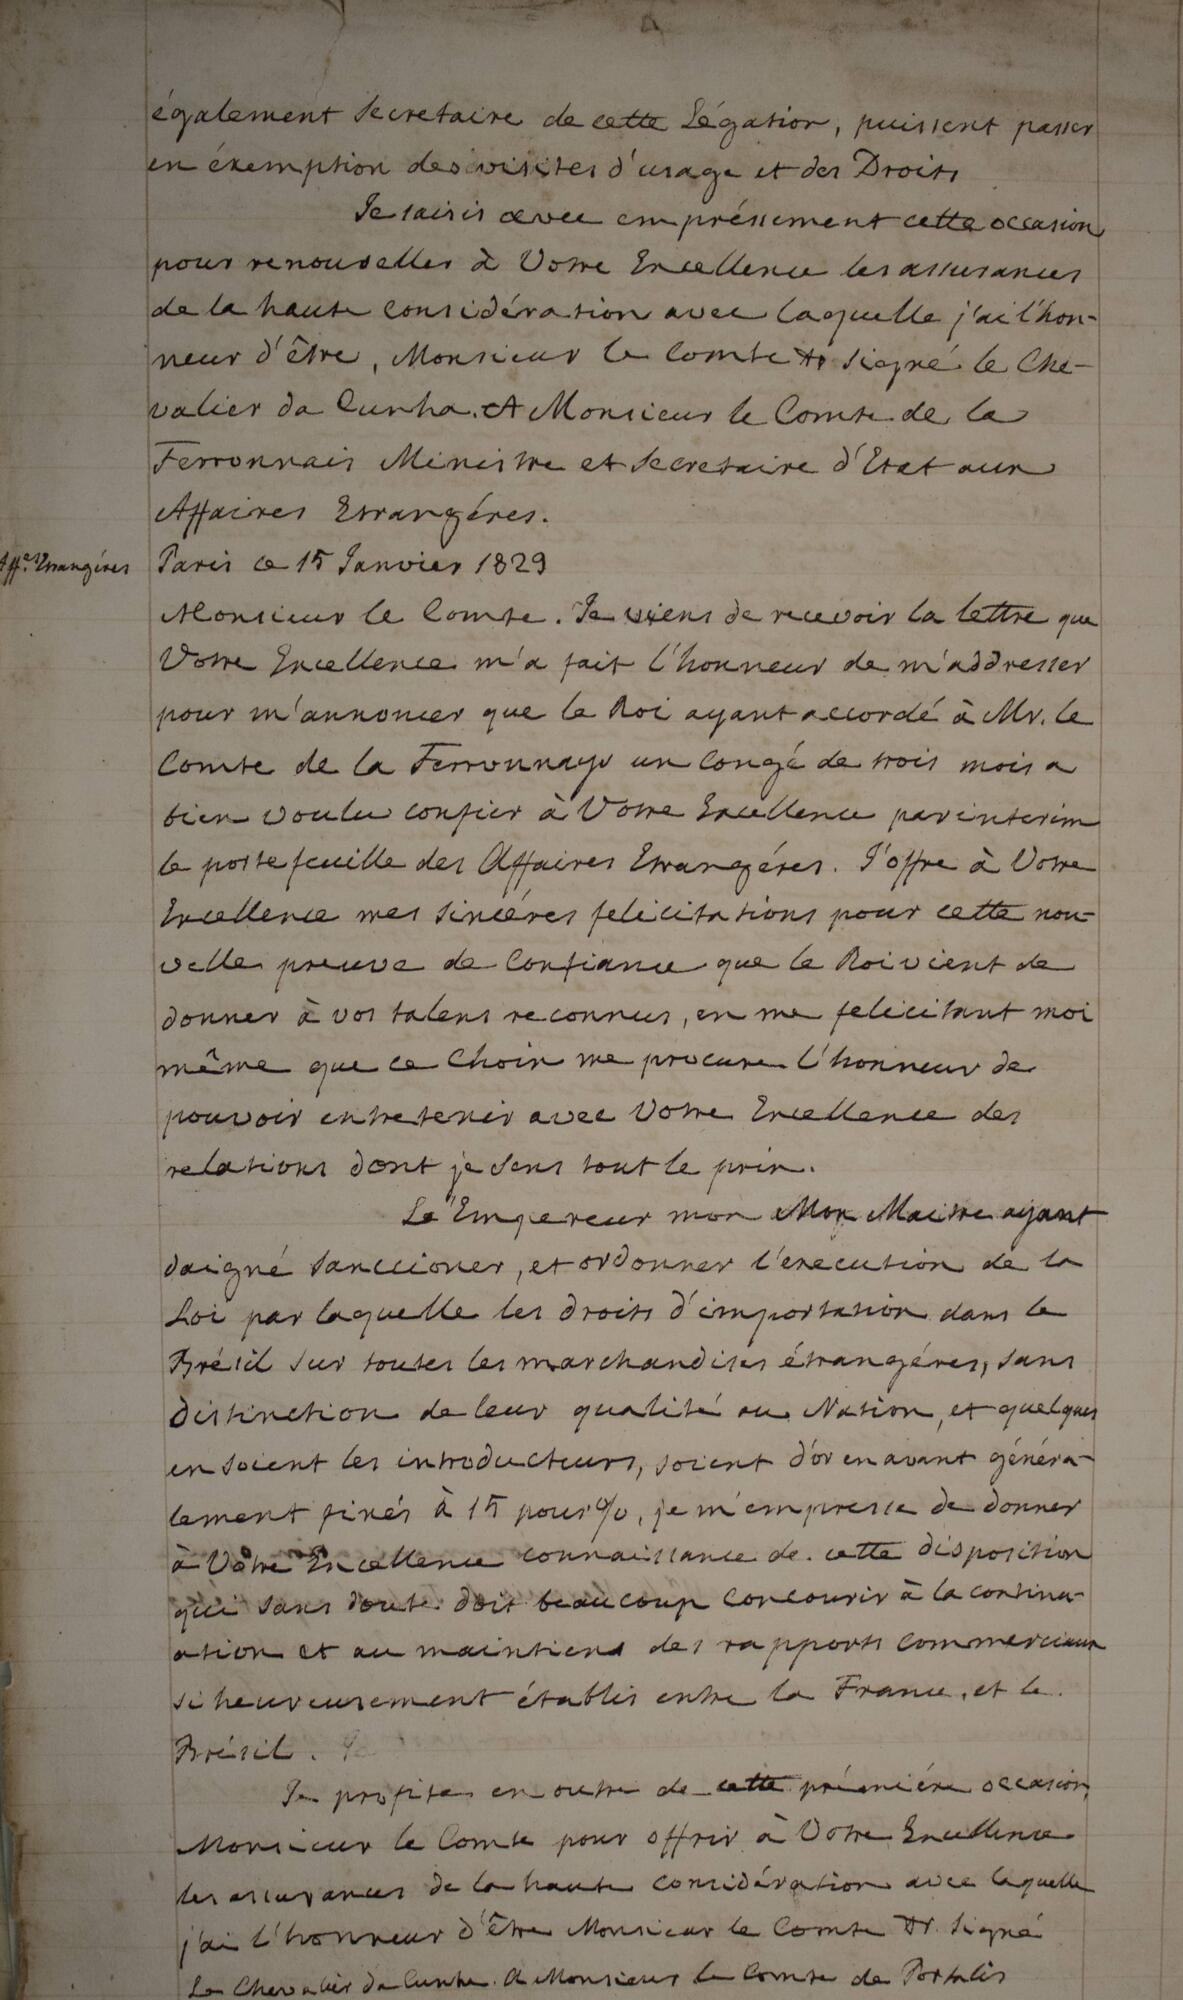 également Secretaire de cette Légation, puissent passer
en éxemption des visites d'usage et des Droits
Je saisis avec empréssement cette occasion
pour renouveller à Votre Excellence les assurances
de la haute considération avec laquelle j'ai l'hon-
neur d'être, Monsieur le Comte &a signé le Che-
valier da Cunha. A Monsieur le Comte de la
Ferronnais Ministre et Secretaire d'Etat aux
Affaires Etrangéres.
Aff.es Etrangéres
Paris ce 15 Janvier 1829
Monsieur le Comte. Je viens de recevoir la lettre que
Votre Excellence m'a fait l'honneur de m'addresser
pour m'annoncer que le Roi ayant accordé à Mr. le
Comte de la Ferronnays un congé de trois mois a
bien voulu confier à Votre Excellence par interim
le portefeuille des Affaires Etrangéres. J'offre à Votre
Excellence mes sincéres felicitations pour cette nou-
velle preuve de Confiance que le Roi vient de
donner à vos talens reconnus, en me felicitant moi
même que ce Choix me procure l'honneur de
pouvoir entretenir avec Votre Excellence des
relations dont je sens tout le prix.
Le Empereur mon Mon Maitre ayant
daigné sanccioner, et ordonner l'execution de la
Loi par laquelle les droits d'importation dans le
Brésil sur toutes les marchandises étrangéres, sans
distinction de leur qualité ou Nation, et quelques
en soient les introducteurs, soient d'or en avant généra-
lement fixés à 15 pour %, je m'empresse de donner
à Votre Excellence connaissance de cette disposition
qui sans doute doit beaucoup concourir à la continu-
ation et au maintiens des rapports commerciaux
si heureusement établis entre la France, et le
Brésil.
Je profite en outre de cette prémiére occasion,
Monsieur le Comte pour offrir à Votre Excellence
les assurances de la haute considération avec laquelle
j'ai l'honneur d'être Monsieur le Comte &a signé
Le Chevalier da Cunha. A Monsieur le Comte de Portalis